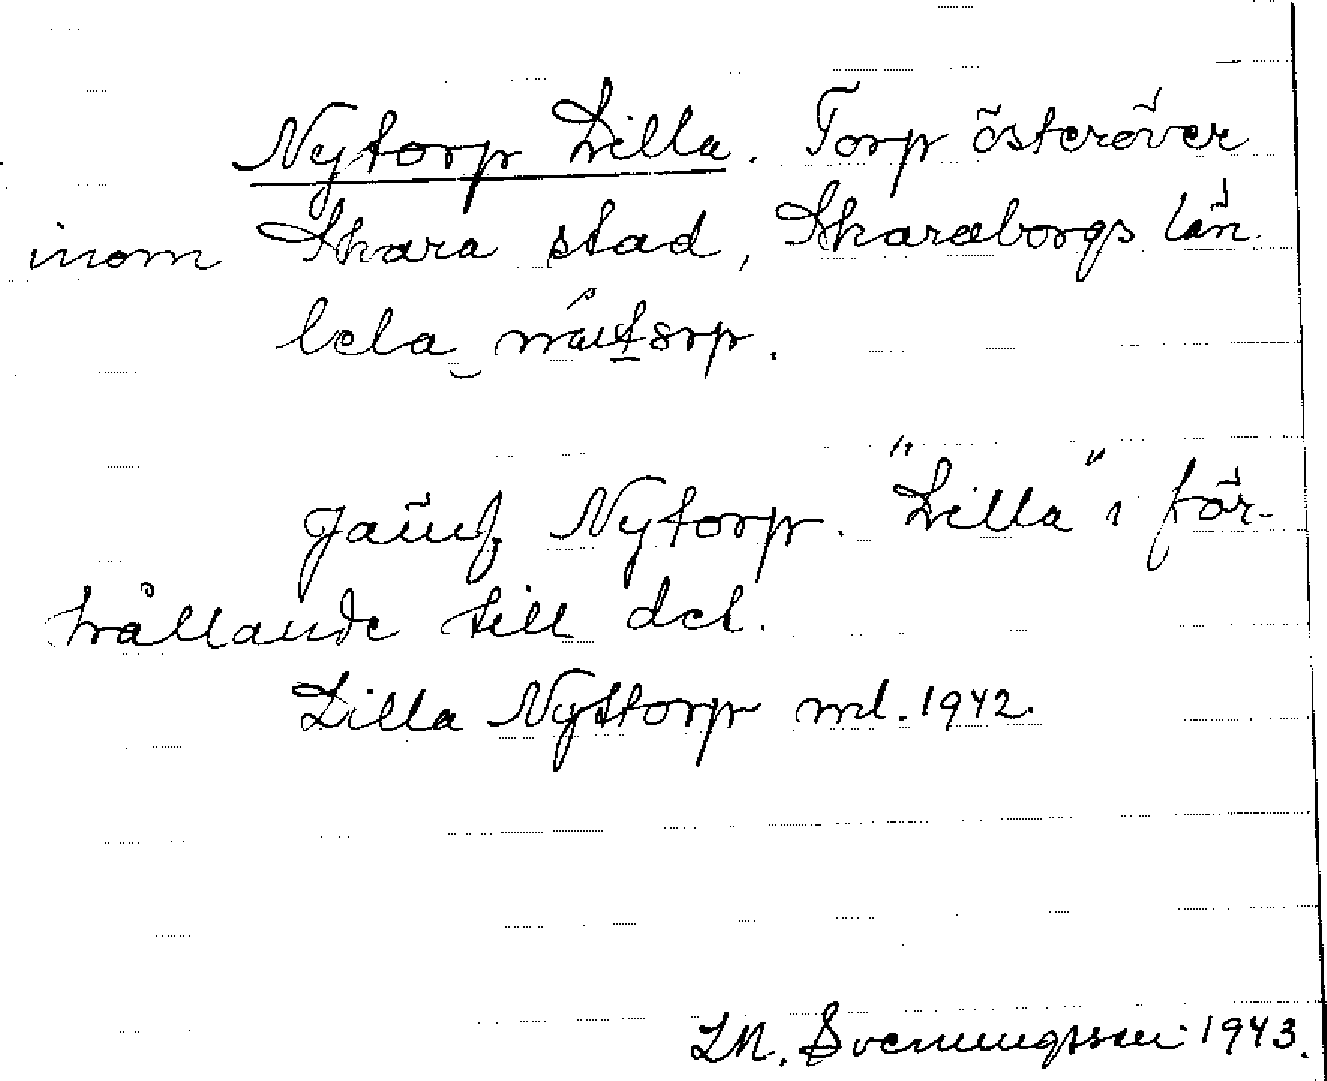 Nytorp Lilla. Torp österöver
inom Skara stad, Skaraborgs län.
lela
Jämf Nytorp. "Lilla" i för-
hållande till det.
Lilla Nyttorp ml. 1942.
Svenningsson 1943.